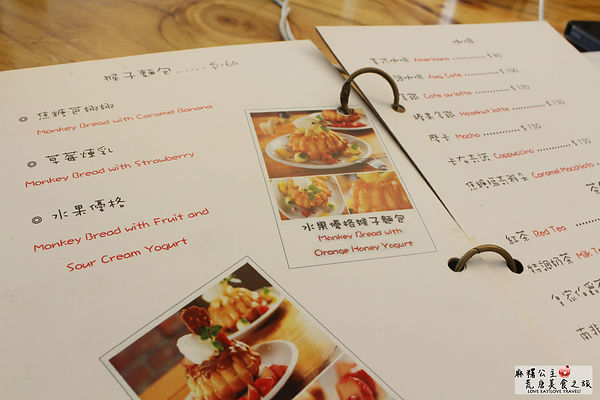 猴子麵包......$160
◎ 焦糖芭娜娜
Monkey Bread with Caramel Banana
◎ 草莓煉乳
Monkey Bread with Strawberry
◎ 水果優格
Monkey Bread with Fruit and
Sour Cream Yogurt
水果優格猴子麵包
Monkey Bread with
Orange Honey Yogurt
咖啡
美式咖啡 Americano
Cafe au latte
榛果拿鐵 Hazelnut latte
摩卡 Mocha ............ $130
卡布奇諾 Cappuccino ............ $130
Caramel Macchiato
紅茶 Red Tea
特調奶茶
南非
麻糬公主
荒唐美食之旅
LOVE EAT!LOVE TRAVEL!